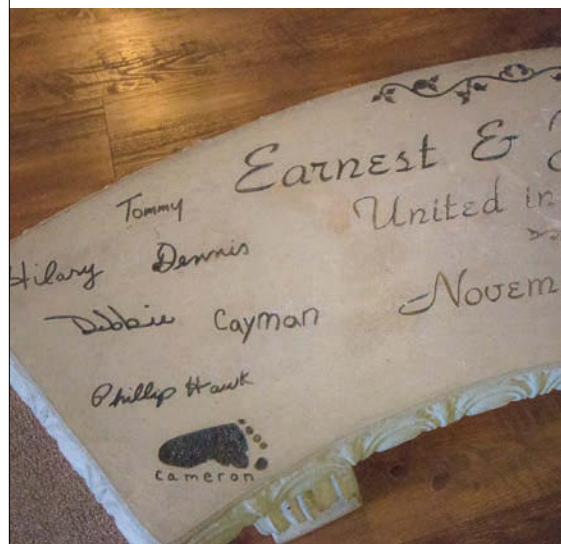 Earnest &
United in
Novem
Tommy
Hilary Dennis
Debbie Cayman
Phillip Hawk
cameron